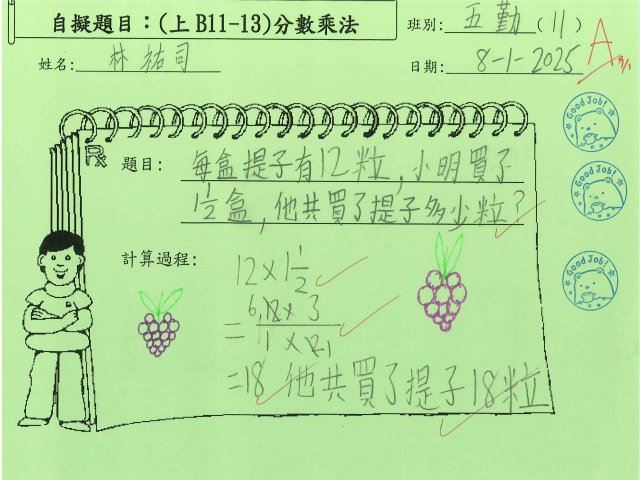 自擬題目：(上 B11-13)分數乘法
班別: 五勤 (11)
A
9/1
姓名: 林祐司
日期: 8-1-2025
題目: 每盒提子有12粒,小明買了
1½盒,他共買了提子多少粒?
計算過程:
12×1½
= 6 12 × 3 / 1 × 2 1
=18 他共買了提子18粒
GOOD JOB!
GOOD JOB!
GOOD JOB!